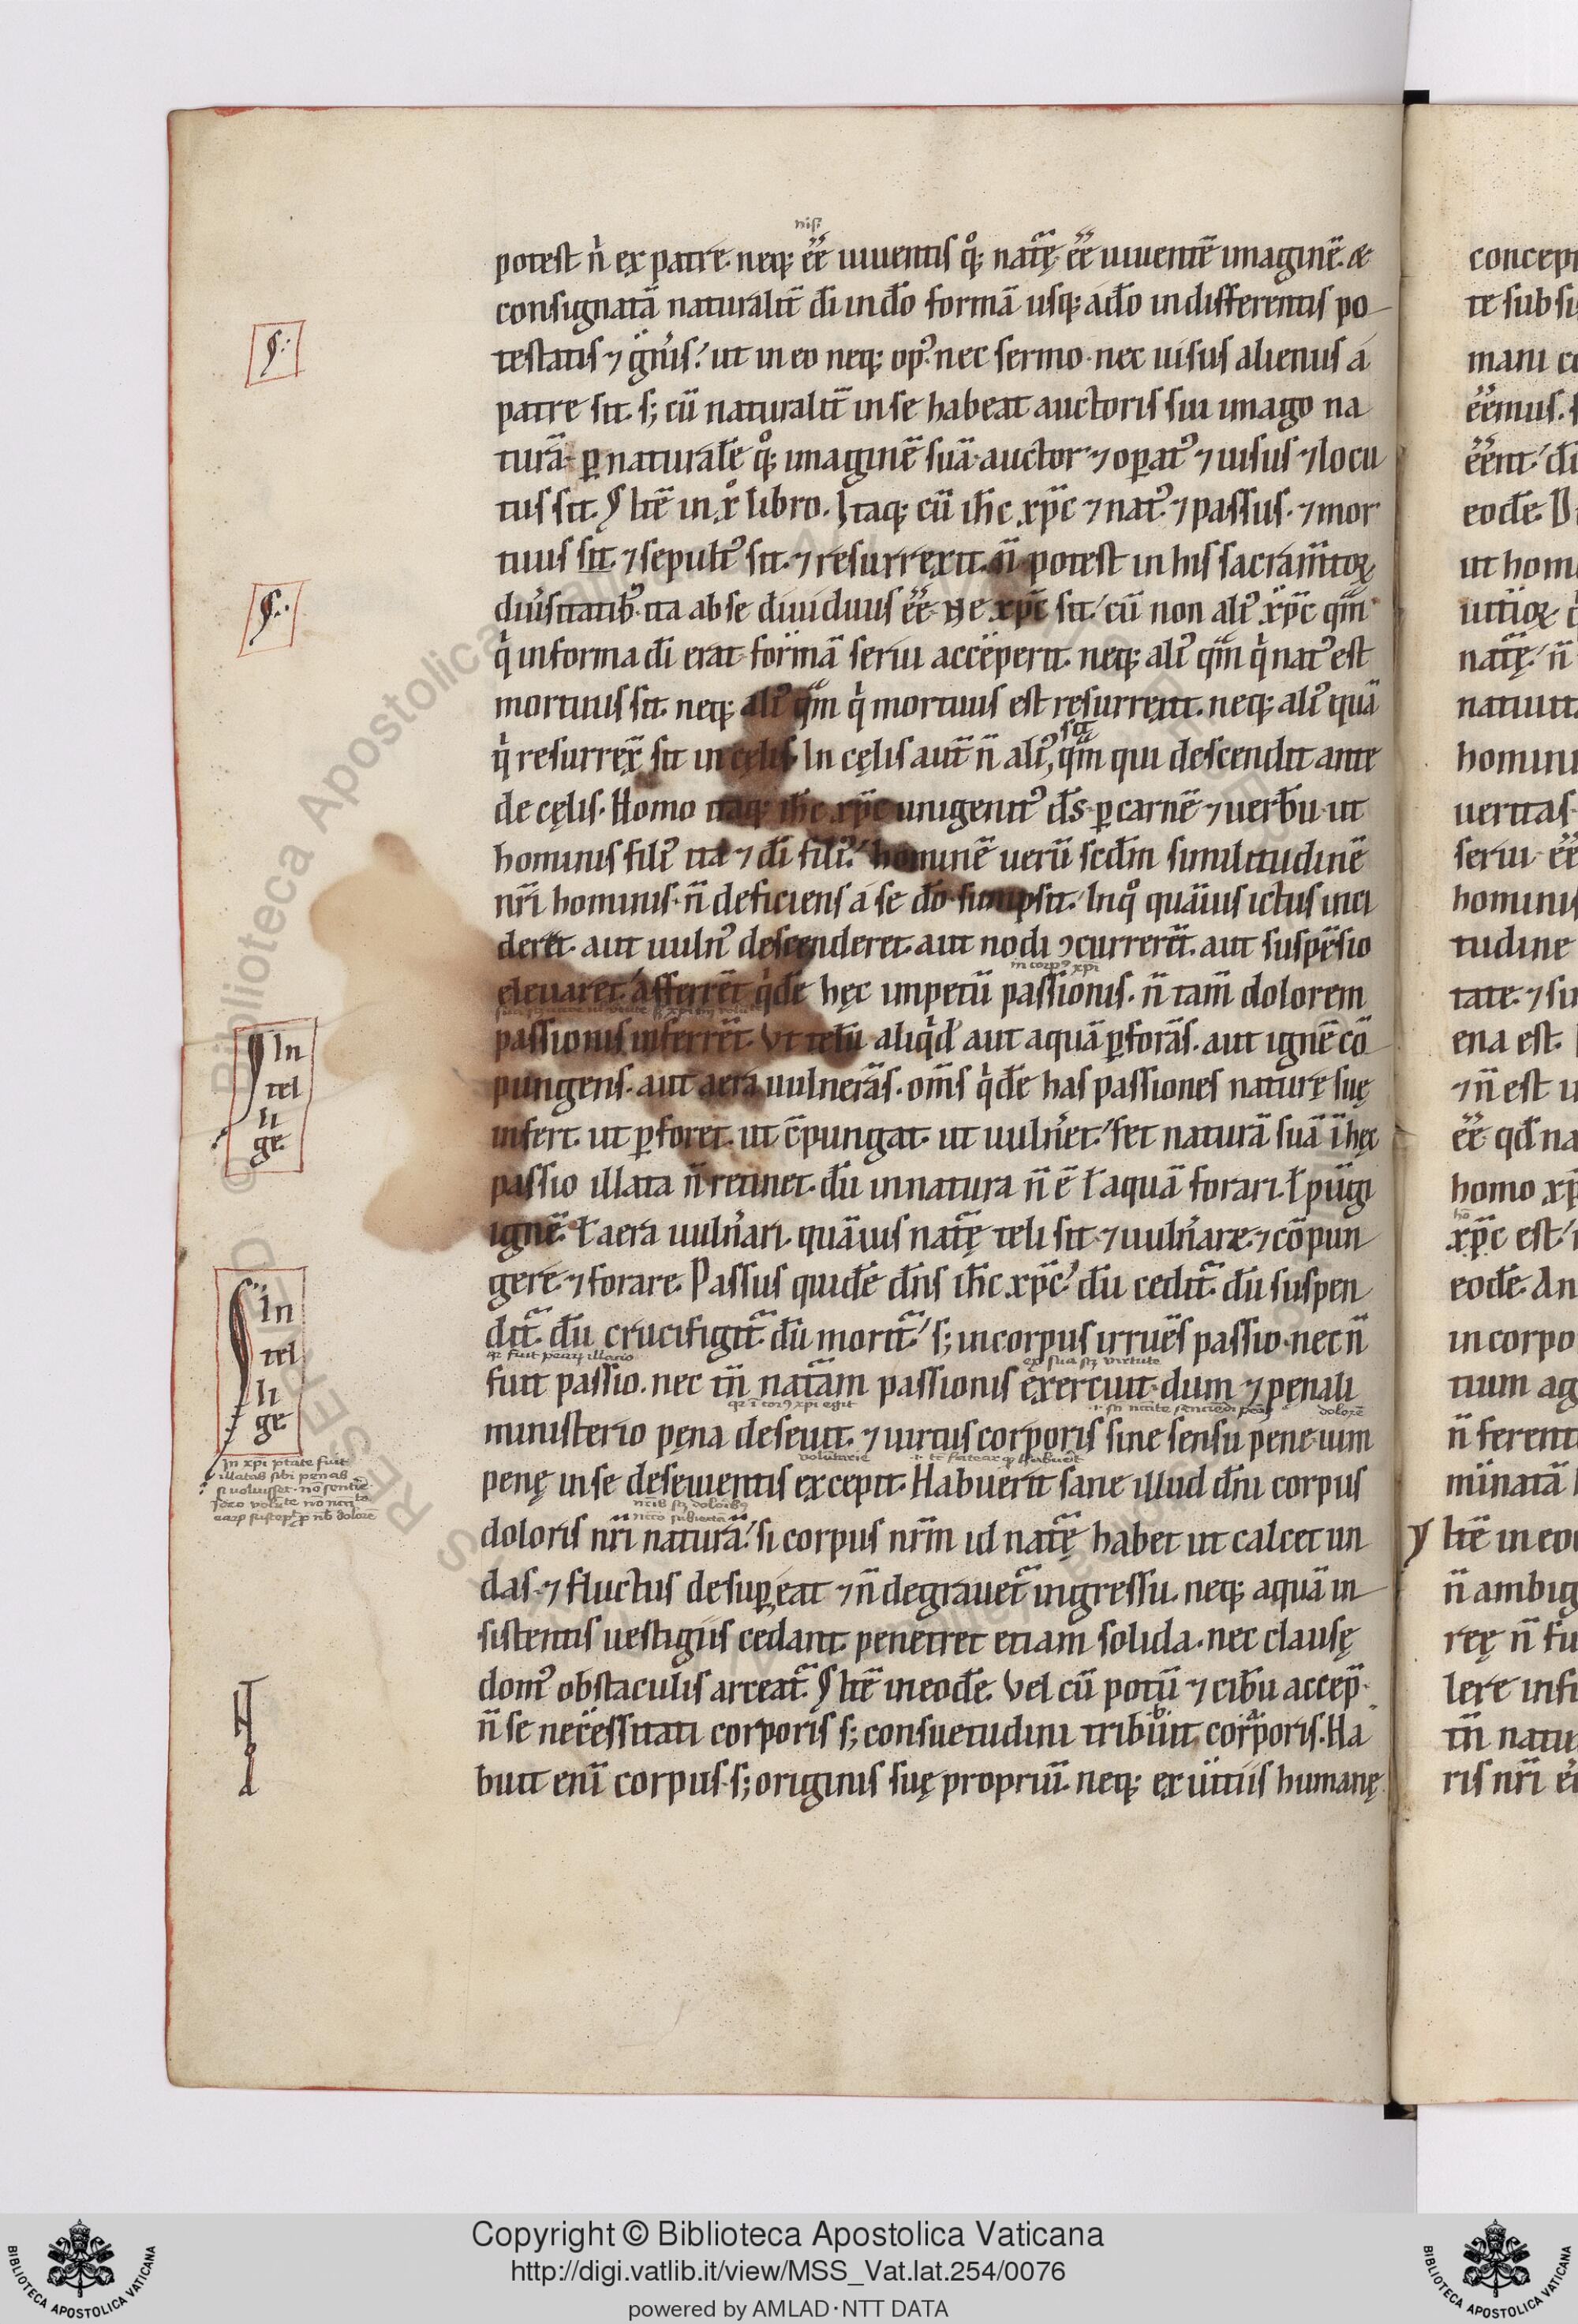 nisi
potest n̄ ex patre. neq; ēē uiuentis q°; nat̄ę ēē uiuentē imaginē. &
consignatā naturalit̄ dī in dō formā usq; ad dō indifferentis po
testatis ⁊ gn̄is? ut in eo neq; op? nec sermo. nec uisus alienus á
patre sit. s; cū naturalit̄ in se habeat auctoris sui imago na
turā. ꝑ naturalē q°; imaginē suā. auctor ⁊ opat᾽ ⁊ uisus ⁊ locu
tus sit. Itē in .x°. libro. Itaq; cū ih̄c xp̄c ⁊ nat᾽ ⁊ passus. ⁊ mor
tuus sit. ⁊ sepult᾽ sit. ⁊ resurrexit. n̄ potest in his sacram̄toꝝ
diu̓sitatib᾽ ita ab se diuiduus ēē. Ne xp̄c sit / cū non ali᾽ xp̄c qm̄
q̍ in forma dī erat. formā serui acceperit. neq; ali᾽ qm̄ q̍ nat᾽ est
mortuus sit. neq; ali᾽ qm̄ q̍ mortuus est resurrexit. neq; ali᾽ quā
sit
q̍ resurrex̄ sit in cęlis. In cęlis aut̄ n̄ ali᾽, qm̄ qui descendit ante
de cęlis. Homo itaq; ih̄c xp̄c unigenit᾽ ds̄. ꝑ carnē ⁊ uerbū. ut
hominis fili᾽ ita ⁊ dī fili᾽. hominē uerū scd̄m similitudinē
nr̄i hominis. n̄ deficiens á se dō sumpsit. In q° quāuis ictus inci
deret. aut uuln᾽ descenderet. aut nodi ɔcurrerēt. aut suspēsio
in corp᾽ xp̄i
eleuaret. afferrēt q̍dē hęc impetū passionis. n̄ tam̄ dolorem
passionis inferrēt. Vt telū aliq̍d aut aquā ꝑforās. aut ignē cō
pungens. aut aera uulnerās. om̄s q̍dē has passiones naturę suę
infert. ut ꝑforet. ut c̄pungat. ut uuln̓et. set naturā suā ī hęc
passio illata n̄ retinet. dū in natura n̄ ē ł aquā forari. ł pūgi
ignē. ł aera uuln̓ari. quāuis nat̄ę teli sit ⁊ uuln̓are. ⁊ cōpun
gere. ⁊ forare. Passus quidē dn̄s ih̄c xp̄c᾽ dū cedit̄. dū suspen
dit̄. dū crucifigit̄. dū morit̄. s; in corpus irruēs passio. nec n̄
q̄ fuit illatio
ex sua uirtute
fuit passio. nec tn̄ nat̄am passionis exercuit. dum ⁊ pęnali
q̄ ī corp᾽ xp̄i egit
dolorē
ministerio pęna deseuit. ⁊ uirtus corporis sine sensu pene. uim
uoluntarie
penę in se deseuientis excepit. Habuerit sane illud dn̄i corpus
doloris nr̄i naturā. si corpus nr̄m id nat̄ę habet ut calcet un
das. ⁊ fluctus desuꝑ eat ⁊ n̄ degrauet̄ ingressu. neq; aquā in
sistentis uestigiis cedant. penetret etiam solida. nec clausę
dom᾽ obstaculis arceat̄. Itē in eodē. Vel cū potū ⁊ cibū accep̄.
n̄ se necessitati corporis s; consuetudini tribuit corporis. Ha
buit enī corpus. s; originis suę propriū. neq; ex uitiis humanę
In
tel
li
ge
In
tel
li
ge
In xp̄i p̄tate fuit
illatas sibi penas
si uoluisset. nō sentire
concep
te subsi
mani co
ēēmus. s
ēēnt.
eodē.
ut hom
natiuit
homini
ueritas
serui ēē
hominis
tudine
tate. ⁊ su
ena est.
⁊ n̄ est u
ēē. qd̄ na
homo xp̄
xp̄c est
eodē. An
in corpo
tium ag
n̄ ferent
minatā
Itē in eo
n̄ ambig
reę n̄ fu
lere infi
tn̄ natu
ris nr̄i
© Biblioteca Apostolica Vaticana
Copyright © Biblioteca Apostolica Vaticana
http://digi.vatlib.it/view/MSS_Vat.lat.254/0076
powered by AMLAD·NTT DATA
BIBLIOTECA APOSTOLICA VATICANA
BIBLIOTECA APOSTOLICA VATICANA